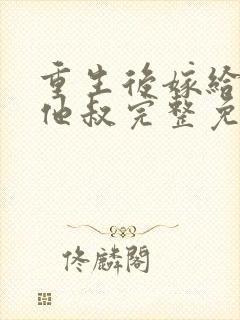 重生後嫁給
他叔完整免
佟麟閣